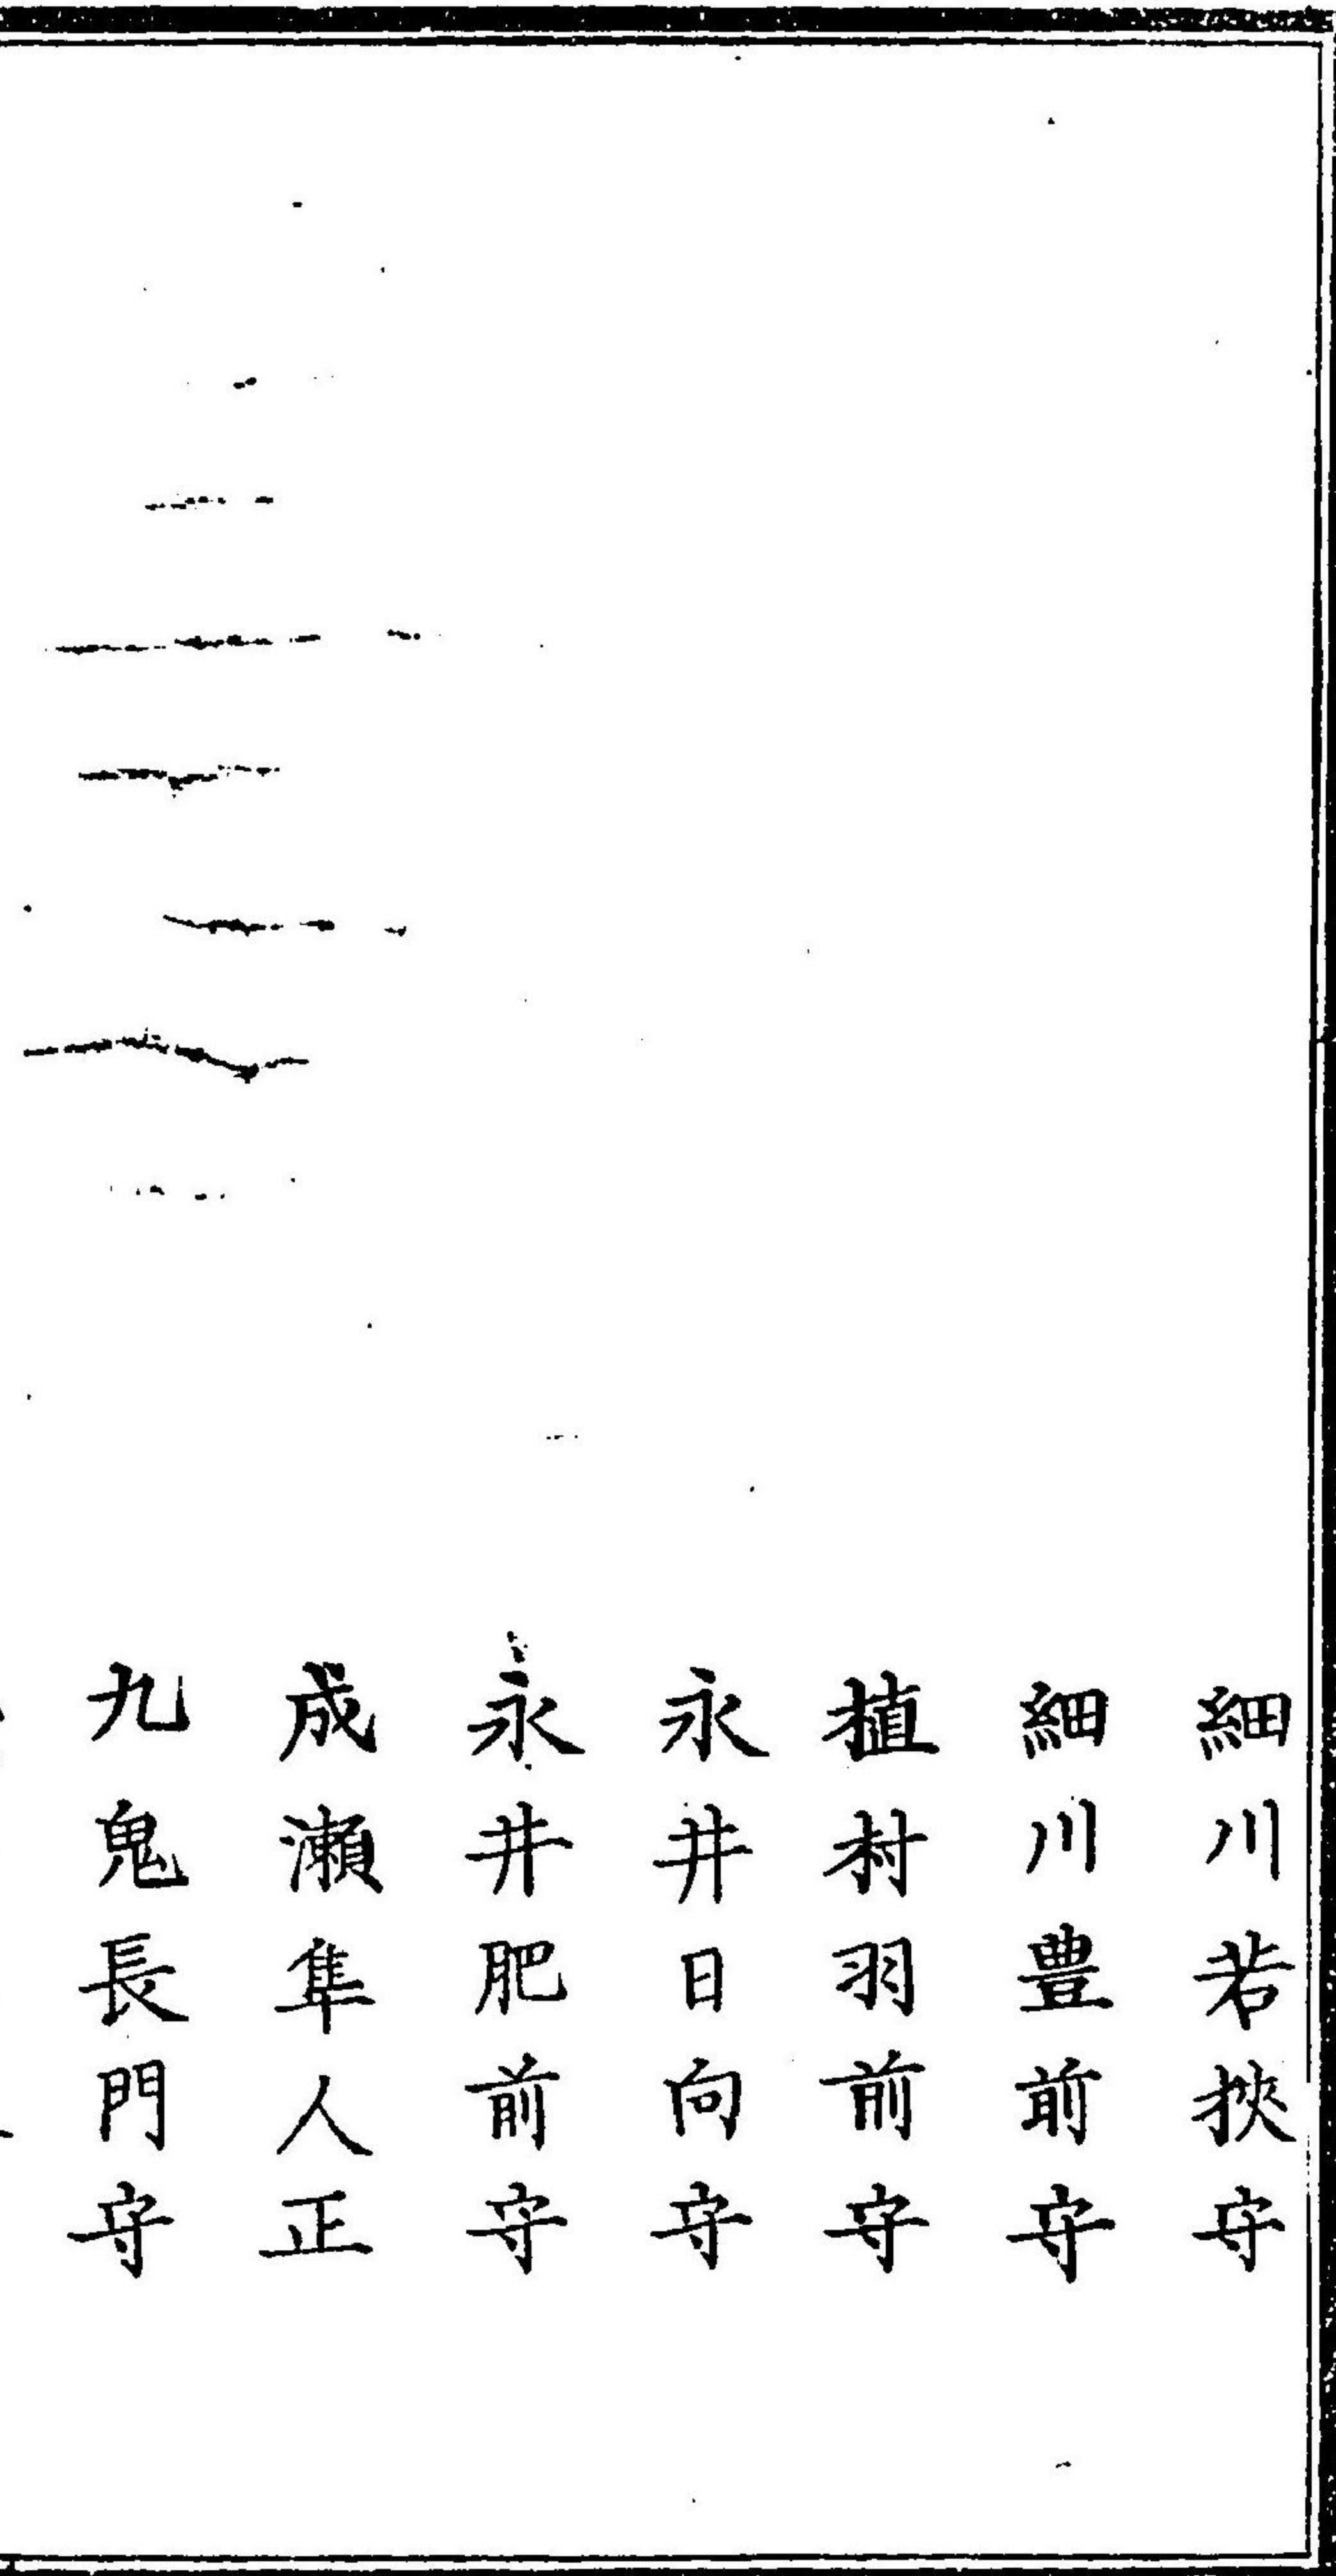 細川若狹守
細川豊前守
植村羽前守
永井日向守
永井肥前守
成瀬隼人正
九鬼長門守